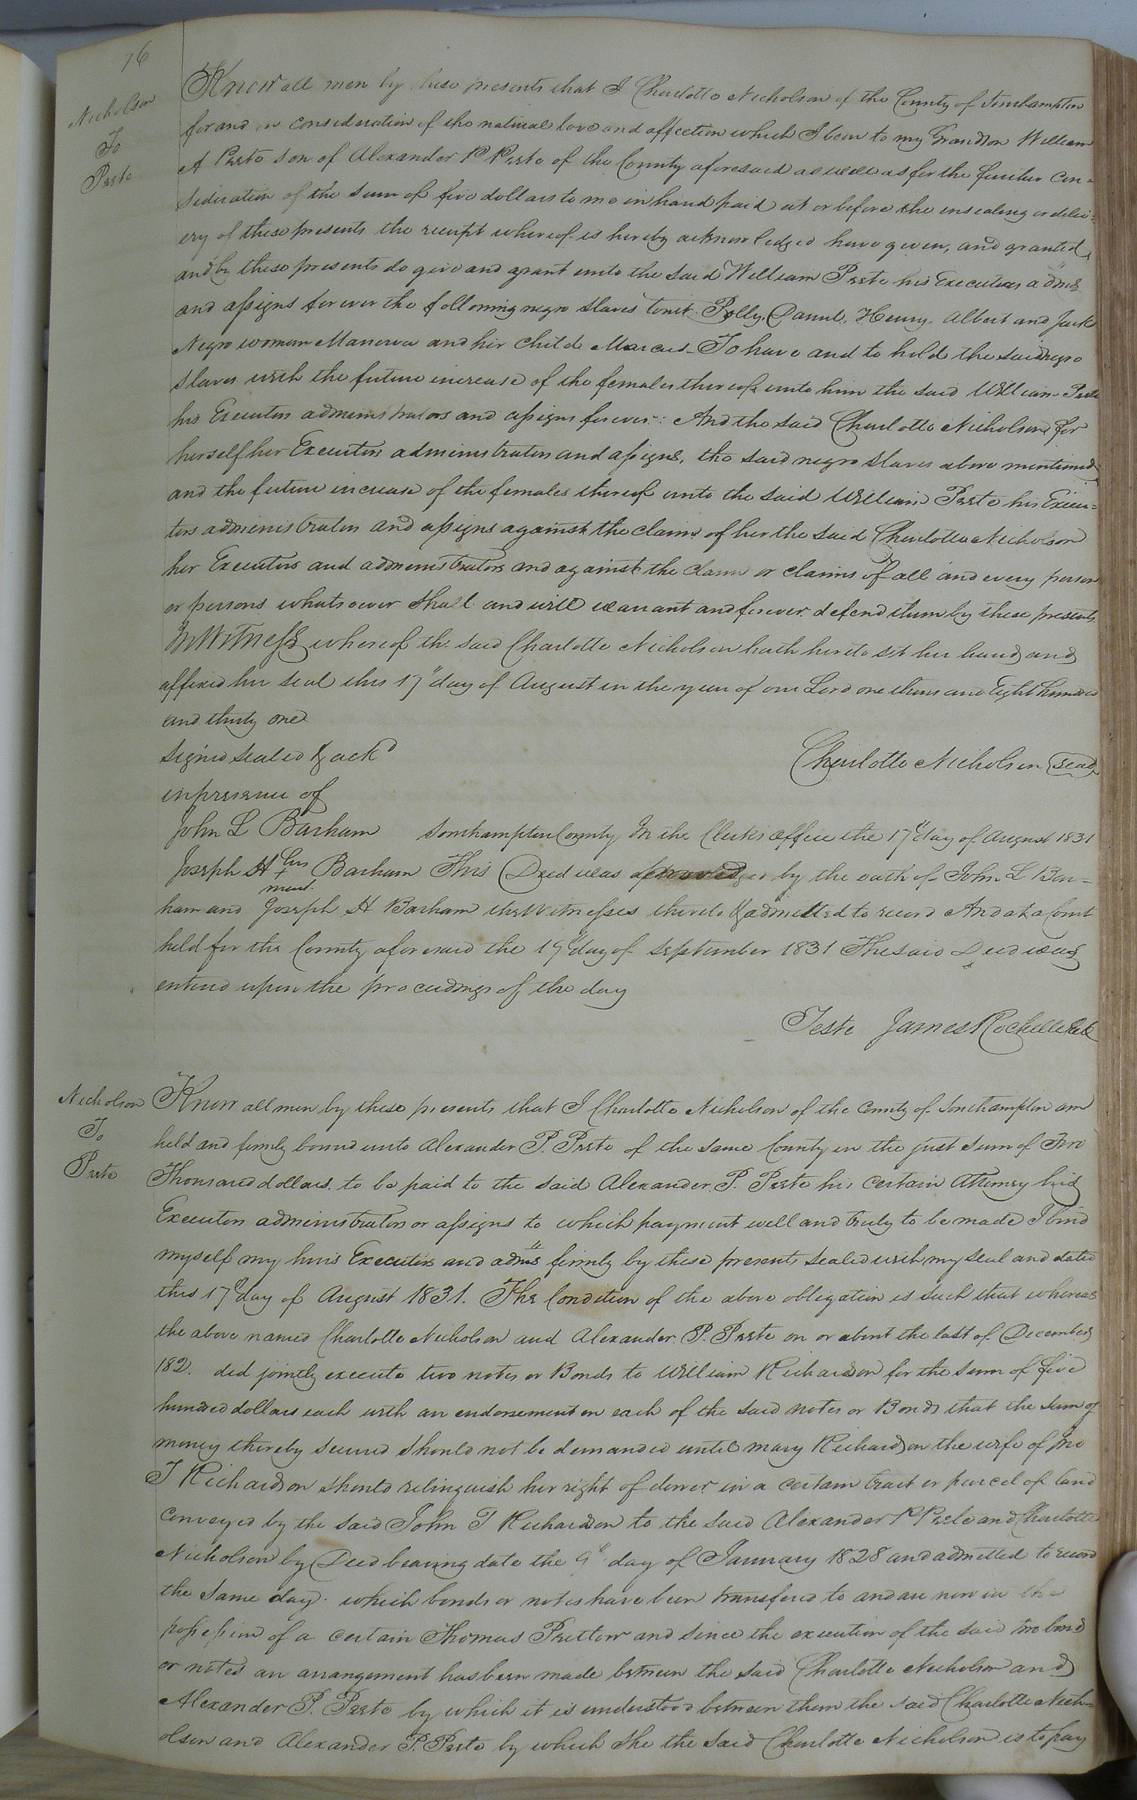 76
Nicholson
To
Peete
Know all men by these presents that I Charlotte Nicholson of the County of Southampton
for and in consideration of the natural love and affection which I bear to my Grandson William
A Peete son of Alexander P Peete of the County aforesaid as well as for the further con-
sideration of the sum of five dollars to me in hand paid at or before the ensealing or deliv-
ery of these presents the receipt whereof is hereby acknowledged have given, and granted,
and by these presents do give and grant unto the said William Peete his Executors admrs
and assigns forever the following negro slaves towit. Polly, Daniel, Henry, Albert and Jack
Negro woman Manerva and her child Marcus - To have and to hold the said negro
slaves with the future increase of the females thereof unto him the said William Peete
his Executors administrators and assigns forever: And the said Charlotte Nicholson for
herself her Executors administrators and assigns, the said negro slaves above mentioned
and the future increase of the females thereof unto the said William Peete his Execu-
tors administrators and assigns against the claims of her the said Charlotte Nicholson
her Executors and administrators and against the claim or claims of all and every person
or persons whatsoever shall and will warrant and forever defend them by these presents
In Witness whereof the said Charlotte Nicholson hath hereto set her hand and
affixed her seal this 17th day of August in the year of our Lord one thous and Eight hundred
and thirty one
Signed sealed & ackd
Charlotte Nicholson Seal
in presence of
John L Barham
Southampton County In the Clerks office the 17th day of August 1831
Joseph H his + mark Barham This Deed was by the oath of John L Bar-
ham and Joseph H Barham the Witnesses thereto & admitted to record And at a Court
held for the County aforesaid the 19th day of September 1831 The said Deed was
entered upon the proceedings of the day
Teste James Rochelle Clk
Nicholson
To
Peete
Know all men by these presents that I Charlotte Nicholson of the County of Southampton am
held and firmly bound unto Alexander P. Peete of the same County in the just sum of Two
Thousand dollars. to be paid to the said Alexander. P. Peete his certain Attorney his
Executors administrators or assigns to which payment well and truly to be made I bind
myself my heirs Executors and admrs firmly by these presents sealed with my seal and dated
this 17th day of August 1831. The Condition of the above obligation is such that whereas
the above named Charlotte Nicholson and Alexander. P. Peete on or about the last of December
182 did jointly execute two notes or Bonds to William Richardson for the sum of five
hundred dollars each with an endorsement on each of the said notes or Bonds that the sum of
money thereby secured should not be demanded until Mary Richardson the wife of Jno
T Richardson should relinquish her right of dower in a certain tract or parcel of land
conveyed by the said John T Richardson to the said Alexander P Peete and Charlotte
Nicholson by Deed bearing date the 9th day of January 1828 and admitted to record
the same day. which bonds or notes have been transfered to and are now in the
possession of a certain Thomas Pretlow and since the execution of the said two bonds
or notes an arrangement has been made between the said Charlotte Nicholson and
Alexander P. Peete by which it is understood between them the said Charlotte Nich-
olson and Alexander P. Peete by which she the said Charlotte Nicholson is to pay